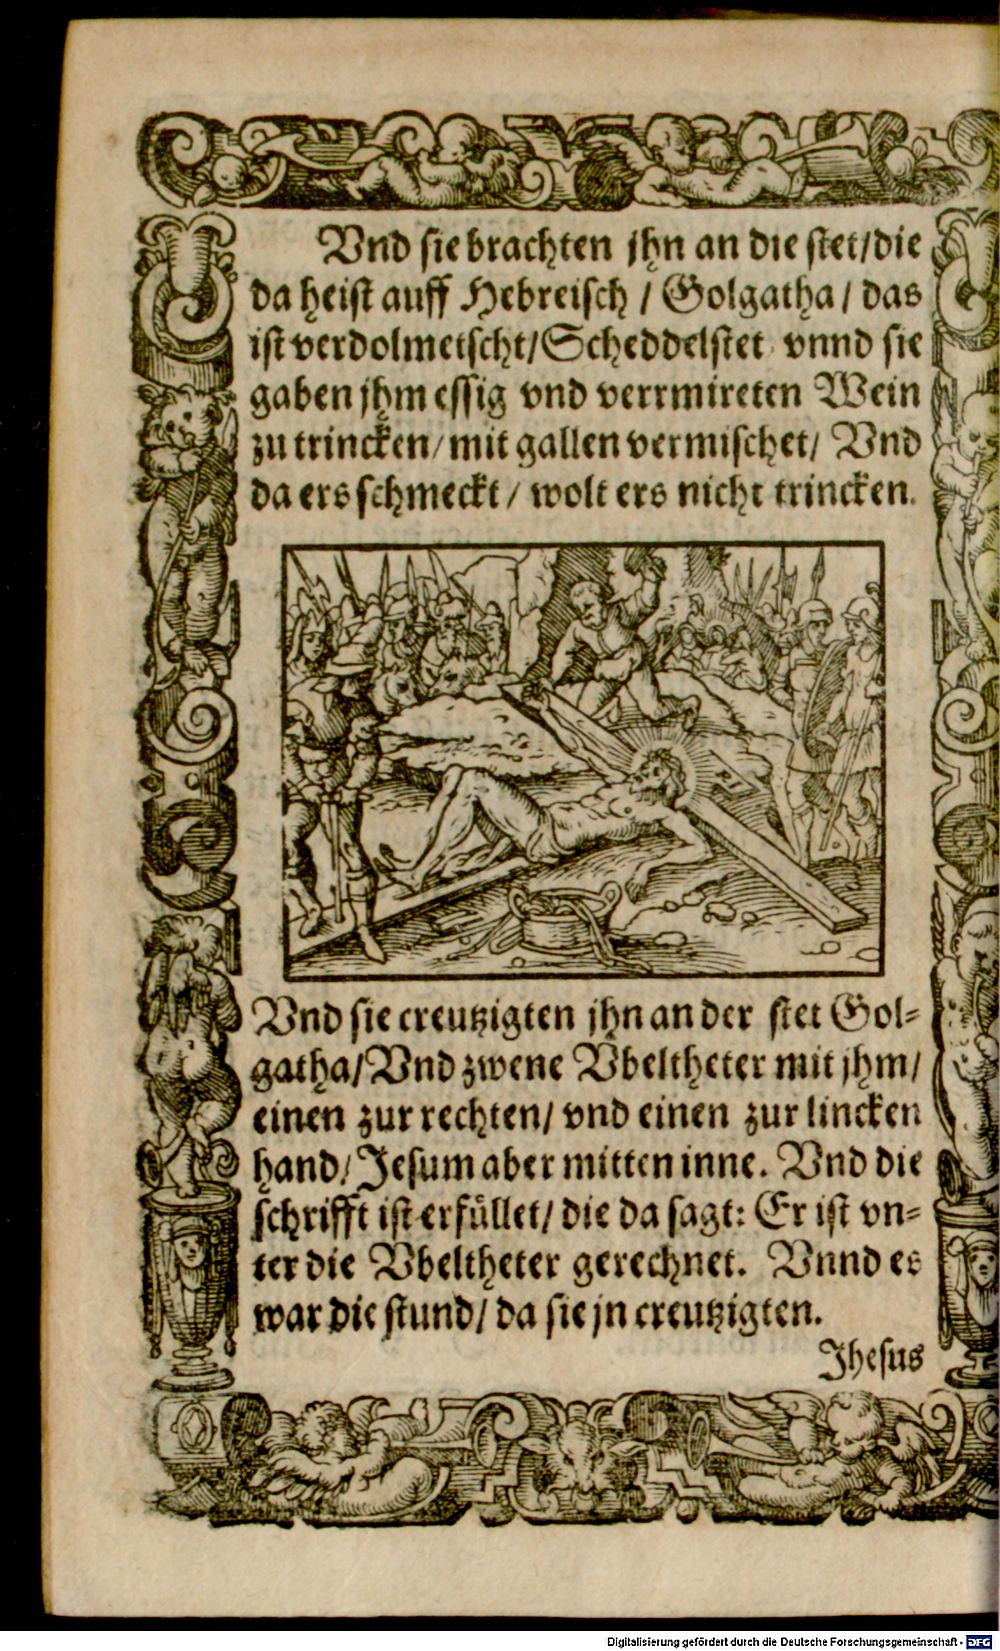 Vnd sie brachten jhn an die stet/die
da heist auff Hebreisch / Golgatha / das
ist verdolmetscht/Scheddelstet, vnnd sie
gaben jhm essig vnd verrmireten Wein
zu trincken/ mit gallen vermischet/ Vnd
da ers schmeckt / wolt ers nicht trincken.
Vnd sie creutzigten jhn an der stet Gol-
gatha/ Vnd zwene Vbeltheter mit jhm/
einen zur rechten/ vnd einen zur lincken
hand/ Jesum aber mitten inne. Vnd die
schrifft ist erfüllet/ die da sagt: Er ist vn-
ter die Vbeltheter gerechnet. Vnnd es
war die stund/ da sie jn creutzigten.
Jhesus
Digitalisierung gefördert durch die Deutsche Forschungsgemeinschaft - DFG